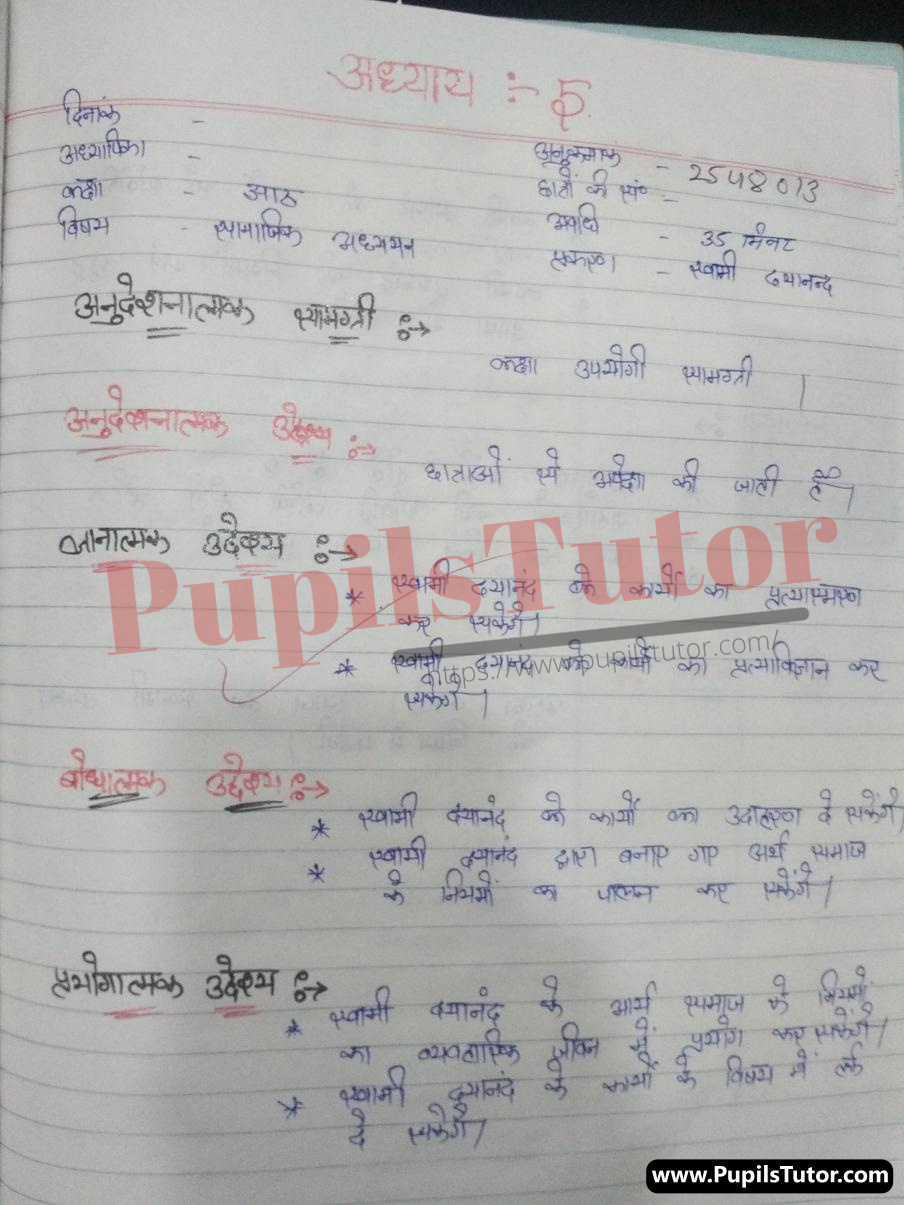 अध्याय :- 5
दिनांक -
अध्यापिका -
कक्षा - आठ
विषय - सामाजिक अध्ययन
अनुक्रमांक - 2548013
छात्रों की सं० -
अवधि - 35 मिनट
प्रकरण - स्वामी दयानन्द
अनुदेशनात्मक सामग्री :→
कक्षा उपयोगी सामग्री ।
अनुदेशनात्मक उद्देश्य :→
छात्राओं से अपेक्षा की जाती है।
ज्ञानात्मक उद्देश्य :→
PupilsTutor
* स्वामी दयानंद के कार्यों का प्रत्यास्मरण
कर सकेंगे।
https://www.pupilstutor.com/
* स्वामी दयानंद के कार्यों का प्रत्याभिज्ञान कर
सकेंगे ।
बोधात्मक उद्देश्य :→
* स्वामी दयानंद के कार्यों का उदाहरण दे सकेंगे
* स्वामी दयानंद द्वारा बनाए गए आर्य समाज
के नियमों का पालन कर सकेंगे।
प्रयोगात्मक उद्देश्य :→
* स्वामी दयानंद के आर्य समाज के नियमों
का व्यवहारिक जीवन में प्रयोग कर सकेंगे।
* स्वामी दयानंद के कार्यों के विषय में तर्क
दे सकेंगे।
www.PupilsTutor.com